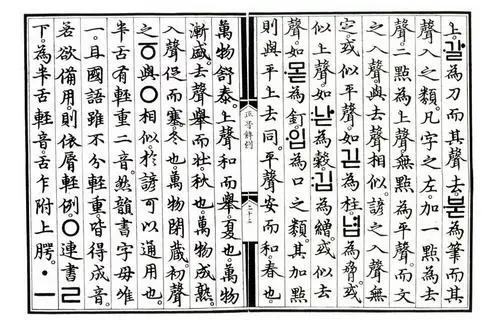 上。갈爲刀而其聲去。붇爲筆而其
聲入之類。凡字之左。加一點爲去
聲。二點爲上聲。無點爲平聲。而文
之入聲。與去聲相似。諺之入聲無
定。或似平聲。如긷爲柱。녑爲脅。或
似上聲。如낟爲穀。깁爲繒。或似去
聲。如몯爲釘。입爲口之類。其加點
則與平上去同。平聲安而和。春也。
正音解例
萬物舒泰。上聲和而擧。夏也。萬物
漸盛。去聲擧而壯。秋也。萬物成熟。
入聲促而塞。冬也。萬物閉藏。初聲
之ㆆ與ㅇ相似。於諺可以通用也。
半舌有輕重二音。然韻書字母唯
一。且國語雖不分輕重。皆得成音。
若欲備用。則依脣輕例。ㅇ連書ㄹ
下。爲半舌輕音。舌乍附上腭。ㆍㅡ